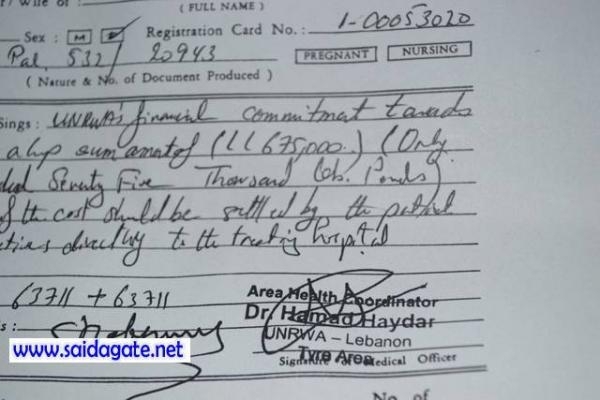 Wife of :
( FULL NAME )
Sex : M F Registration Card No. : 1-00053020
Pal. 532/20943 PREGNANT NURSING
( Nature & No. of Document Produced )
sings : UNRWA's financial commitment towards
a lump sum amount of (LL 675,000.) (Only
Seventy Five Thousand Leb. Pounds)
of the cost should be settled by the patient
directly to the treating hospital
63711 + 63711
Area Health Coordinator
Dr. Hamad Haydar
UNRWA – Lebanon
Tyre Area
Signature of Medical Officer
www.saidagate.net
No. of